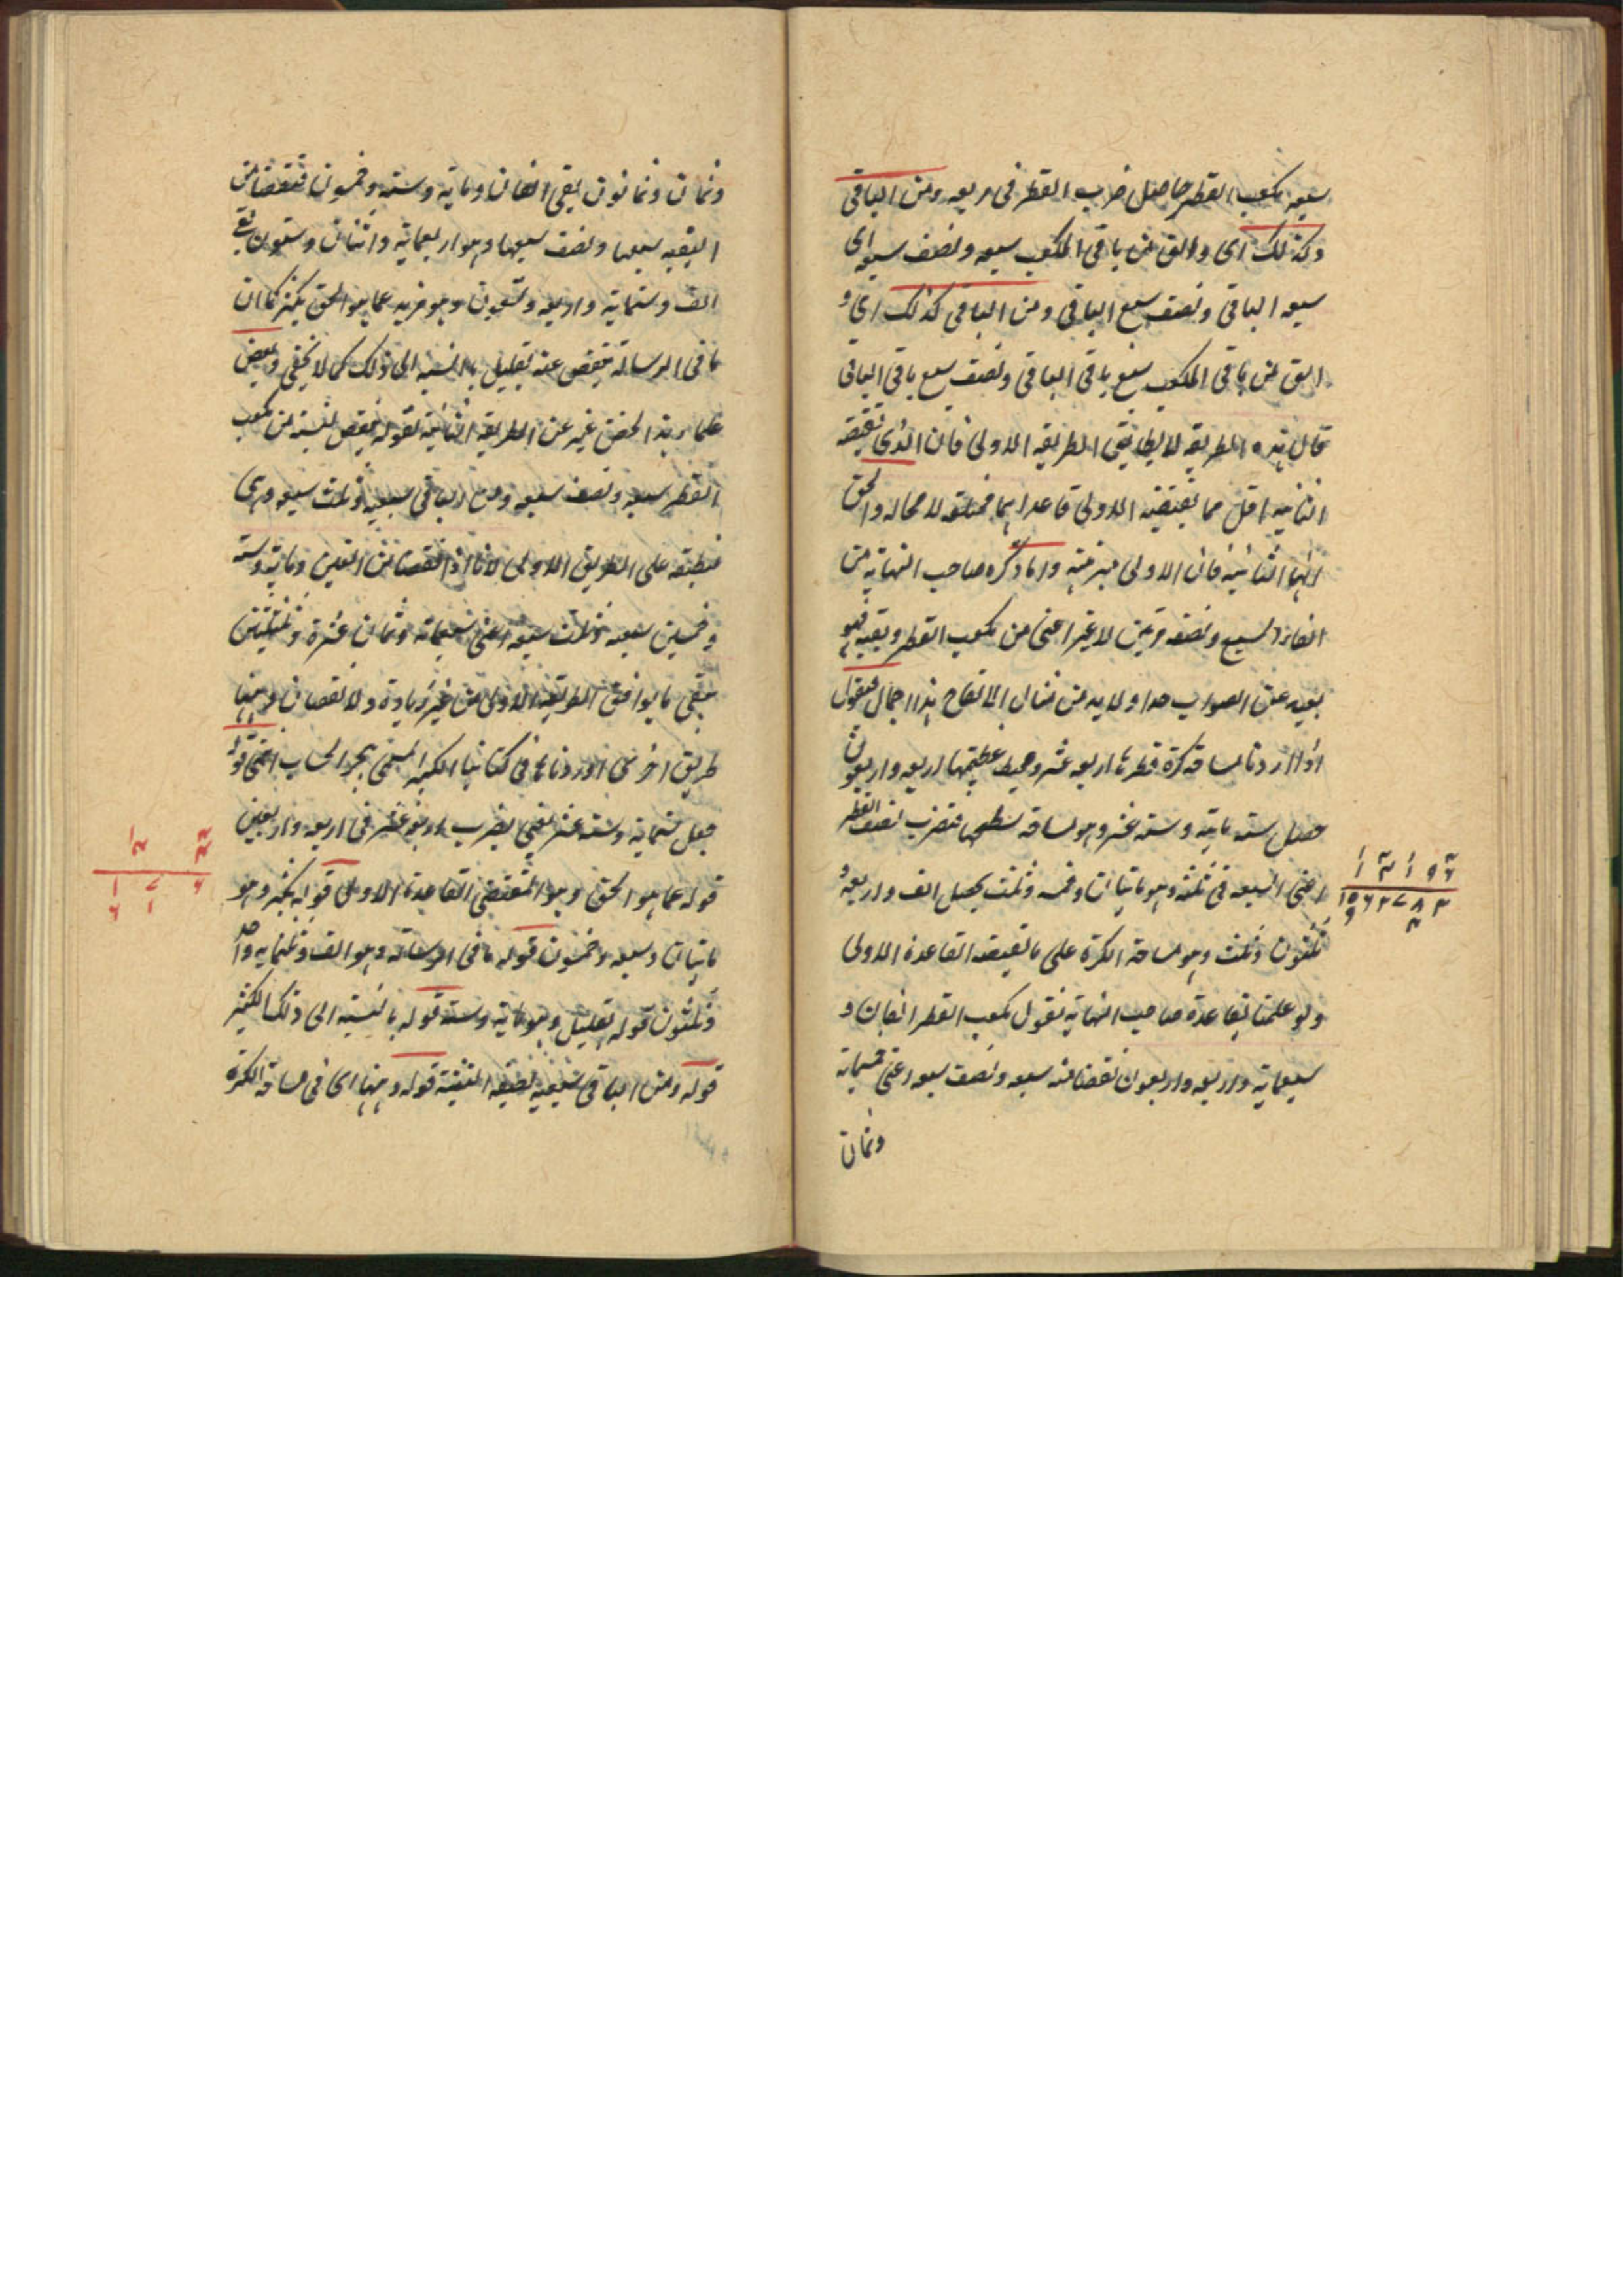 سبعه مكعب القطر حاصل ضرب القطر فى مربعه ومن الباقى
وكذلك اى والق من باقى المكعب سبعه ونصف سبعه اى
سبعه الباقى ونصف سبع الباقى ومن الباقى كذلك اى و
الق من باقى المكعب سبع باقى الباقى ونصف سبع باقى الباقى
قال هذه الطريقه لا يطابق الطريقه الاولى فان الذى تقتضيه
الثانيه اقل مما تقتضيه الاولى فاحداهما مختلة لا محاله والحق
انها الثانيه فان الاولى مبرهنة واما ذكره صاحب النهايه من
القاء السبع ونصفه مرتين لا غير اعنى من مكعب القطر وبقيه فهو
بعيد عن الصواب جدا ولا بد من مثال لاتضاح هذا الاجمال فنقول
اذا اردنا مساحة كرة قطرها اربعه عشر ومحيط عظيمتها اربعه واربعون
حصل ستمايه وسته عشر وهو مساحة سطحها فنضرب نصف القطر
اعنى السبعه فى ثلثه وهو مايتان وخمسه وثلث يحصل الف واربعه و
ثلثون وثلث وهو مساحة الكرة على ما تقتضيه القاعدة الاولى
ولو علمنا بقاعدة صاحب النهايه نقول مكعب القطر الفان و
سبعمايه واربعه واربعون نقصنا منه سبعه ونصف سبعه اعنى خمسمايه
وثمان
وثمان وثمانون يبقى الفان ومايه وسته وخمسون فنقصنا من
البقيه سبعها ونصف سبعها وهو اربعمايه واثنان وستون بقى
الف وستمايه واربعه وتسعون وهو مزيد عما هو الحق بكثير كما ان
ما فى الرساله ينقص عنه بقليل بالنسبه الى ذلك كما لا يخفى وبعض
علماء هذا الفن عبر عن الطريقه الثانيه بقوله ينقص من مكعب
القطر سبعه ونصف سبعه ومن الباقى سبعيه وثلث سبعه وهى
منطبقه على الطريق الاولى لانا اذا نقصنا من الفين ومايه وسته
وخمسين سبعه وثلث سبعه اعنى سبعمايه وثمان عشرة وثلثين
يبقى ما يوافق الطريقه الاولى من غير زيادة ولا نقصان وههنا
طريق اخرى اوردناها فى كتابنا الكبير المسمى ببحر الحساب اعنى قوله
حصل ستمايه وسته عشر يعنى بضرب اربعه عشر فى اربعه واربعين
قوله عما هو الحق وهو المقتضى القاعدة الاولى قوله بكثير وهو
مايتان وسبعه وخمسون قوله ما فى الرساله وهو الف وثلثمايه واحد
وثلثون قوله بقليل وهو مايه وسته قوله بالنسبه الى ذلك الكثير
قوله ومن الباقى سبعيه بصيغه التثنية قوله وههنا اى فى مساحة الكرة